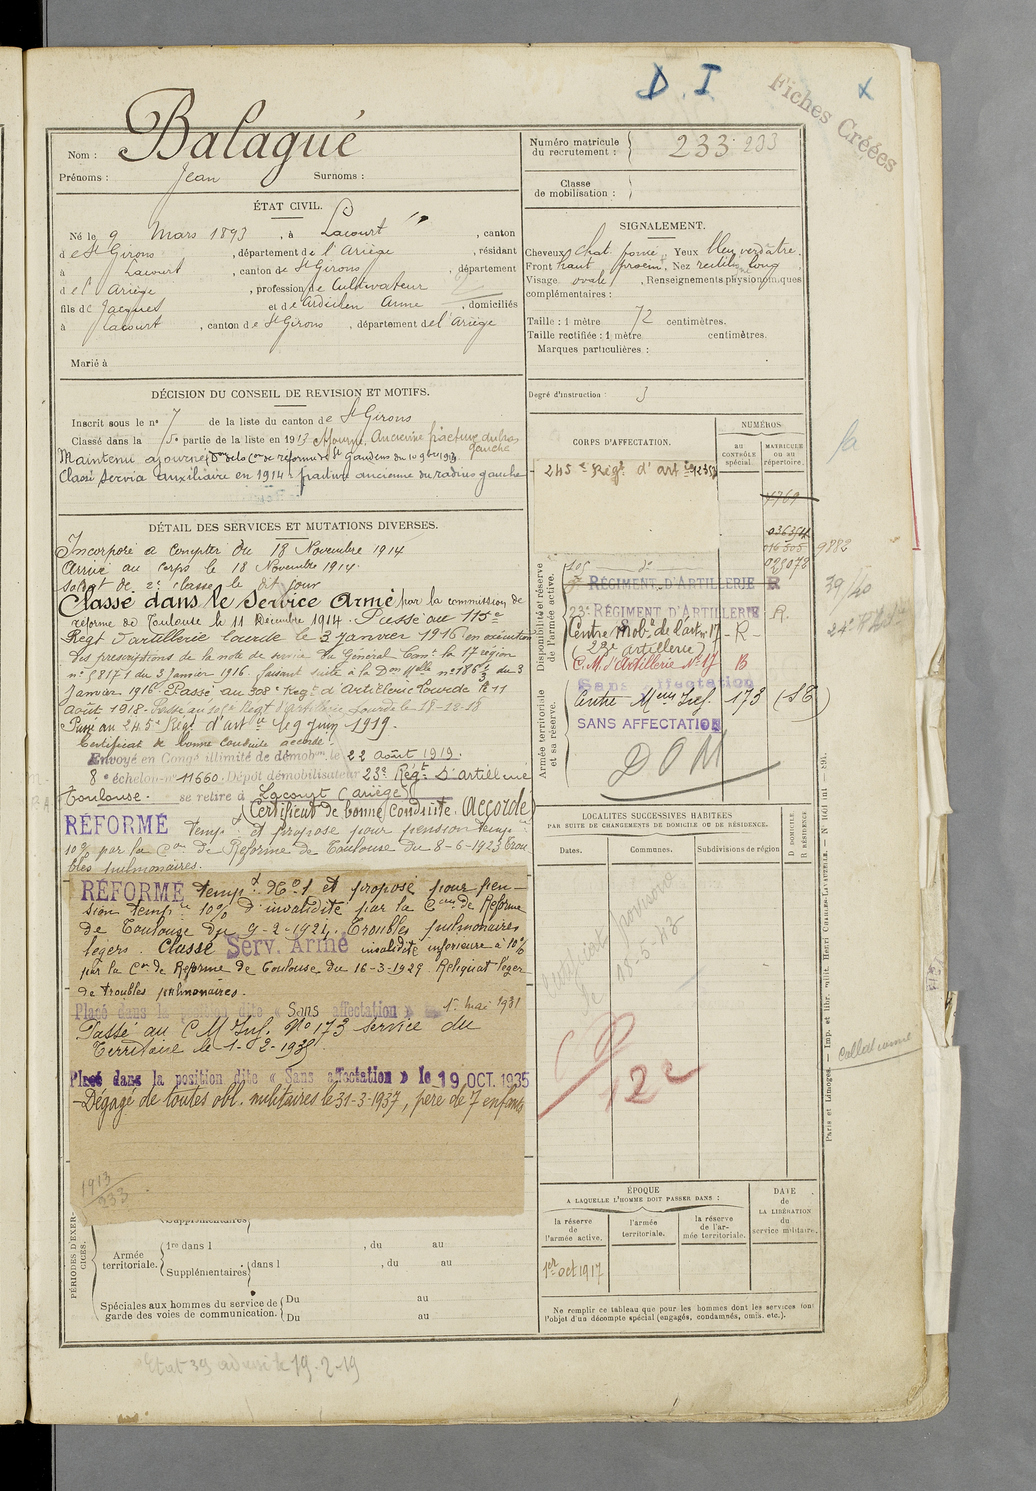 D. I
Fiches Créées
Nom : Balagué
Prénoms : Jean Surnoms :
Numéro matricule du recrutement : 233 233
Classe de mobilisation :
ÉTAT CIVIL.
Né le 9 Mars 1893, à Lacourt, canton
de St Girons, département de l'Ariège, résidant
à Lacourt, canton de St Girons, département
de l'Ariège, profession de Cultivateur
fils de Jacques et de Ardichen Anne, domiciliés
à Lacourt, canton de St Girons, département de l'Ariège
Marié à
SIGNALEMENT.
Cheveux chat. foncé Yeux bleu verdâtre.
Front haut Nez rectiligne long
Visage ovale, Renseignements physionomiques
complémentaires :
Taille : 1 mètre 72 centimètres.
Taille rectifiée : 1 mètre centimètres.
Marques particulières :
Degré d'instruction : 3
DÉCISION DU CONSEIL DE REVISION ET MOTIFS.
Inscrit sous le n° 7 de la liste du canton de St Girons
Classé dans la 5e partie de la liste en 1913 Ajourné. Ancienne fracture du bras gauche
Maintenu ajourné Don de la Con de réforme de St Gaudens du 10 9bre 1913
Classé Service auxiliaire en 1914 - fracture ancienne du radius gauche
DÉTAIL DES SERVICES ET MUTATIONS DIVERSES.
Incorporé à compter du 18 Novembre 1914
Arrivé au Corps le 18 Novembre 1914.
Soldat de 2e classe le dit jour
Classé dans le Service Armé par la commission de
réforme de Toulouse le 11 Décembre 1914. Passé au 115e
Regt d'artillerie lourde le 3 janvier 1916 en exécution
des prescriptions de la note de service du Général Comt la 17 région
n° 5817 I du 3 Janvier 1916. faisant suite à la Don Melle n° 186 du 3
Janvier 1916. Passé au 308e Regt d'Artillerie Lourde le 11
août 1918. Passé au 105e Regt d'Artillerie Lourde le 18-12-18
Passé au 245e Régt d'artie le 9 juin 1919.
Certificat de bonne conduite accordé.
Envoyé en Congé illimité de démobon le 22 août 1919.
8e échelon n° 11660. Dépôt démobilisateur 23e Régt d'artillerie
Toulouse. se retire à Lacourt (Ariège)
Certificat de bonne Conduite. Accordé
RÉFORMÉ tempre et proposé pour pension tempre
10% par la Con de Réforme de Toulouse du 8-6-1923 Trou
bles pulmonaires.
RÉFORMÉ tempre N° 1 et proposé pour pen-
sion tempre 10% d'invalidité par la Con de Réforme
de Toulouse du 9-2-1924. Troubles pulmonaires
légers. Classé Serv. Armé invalidité inférieure à 10%
par la Con de Réforme de Toulouse du 16-3-1929. Reliquat léger
de troubles pulmonaires.
Placé dans la position dite « Sans affectation » 1er mai 1931
Passé au C M Inf. No 173 service du
Territoire le 1-2-1935.
Placé dans la position dite « Sans affectation » le 19 OCT. 1935
Dégagé de toutes obl. militaires le 31-3-1937, père de 7 enfants
1913
233
CORPS D'AFFECTATION.
NUMÉROS
AU CONTRÔLE spécial.
MATRICULE OU AU répertoire.
Disponibilité et réserve de l'armée active.
245e Régt d'artie
1769
023078
9882
39/40
105 do
RÉGIMENT D'ARTILLERIE R
23e RÉGIMENT D'ARTILLERIE R.
Centre Mobre de l'artie 17 - R -
(23e artillerie)
C.M. d'Artillerie N° 17 R
Armée territoriale et sa réserve.
Sans affectation
Centre Meur Inf. 173 (ST)
SANS AFFECTATION
DOM
LOCALITÉS SUCCESSIVES HABITÉES
PAR SUITE DE CHANGEMENTS DE DOMICILE OU DE RÉSIDENCE.
Dates. Communes. Subdivisions de région
D DOMICILE
R RÉSIDENCE
Certificat provisoire
le 18-5-42
122
ÉPOQUE
A LAQUELLE L'HOMME DOIT PASSER DANS :
la réserve de l'armée active.
l'armée territoriale.
la réserve de l'armée territoriale.
DATE de LA LIBÉRATION du service militaire.
1er oct 1917
Ne remplir ce tableau que pour les hommes dont les services font
l'objet d'un décompte spécial (engagés, condamnés, omis, etc.).
PÉRIODES D'EXERCICES.
Supplémentaires
Armée territoriale.
1re dans l , du au
Supplémentaires dans l , du au
Spéciales aux hommes du service de garde des voies de communication.
Du au
Du au
Paris et Limoges. — Imp. et libr. milit. Henri CHARLES-LAVAUZELLE.
Collationné
Etat 39 adressé le 19-2-19